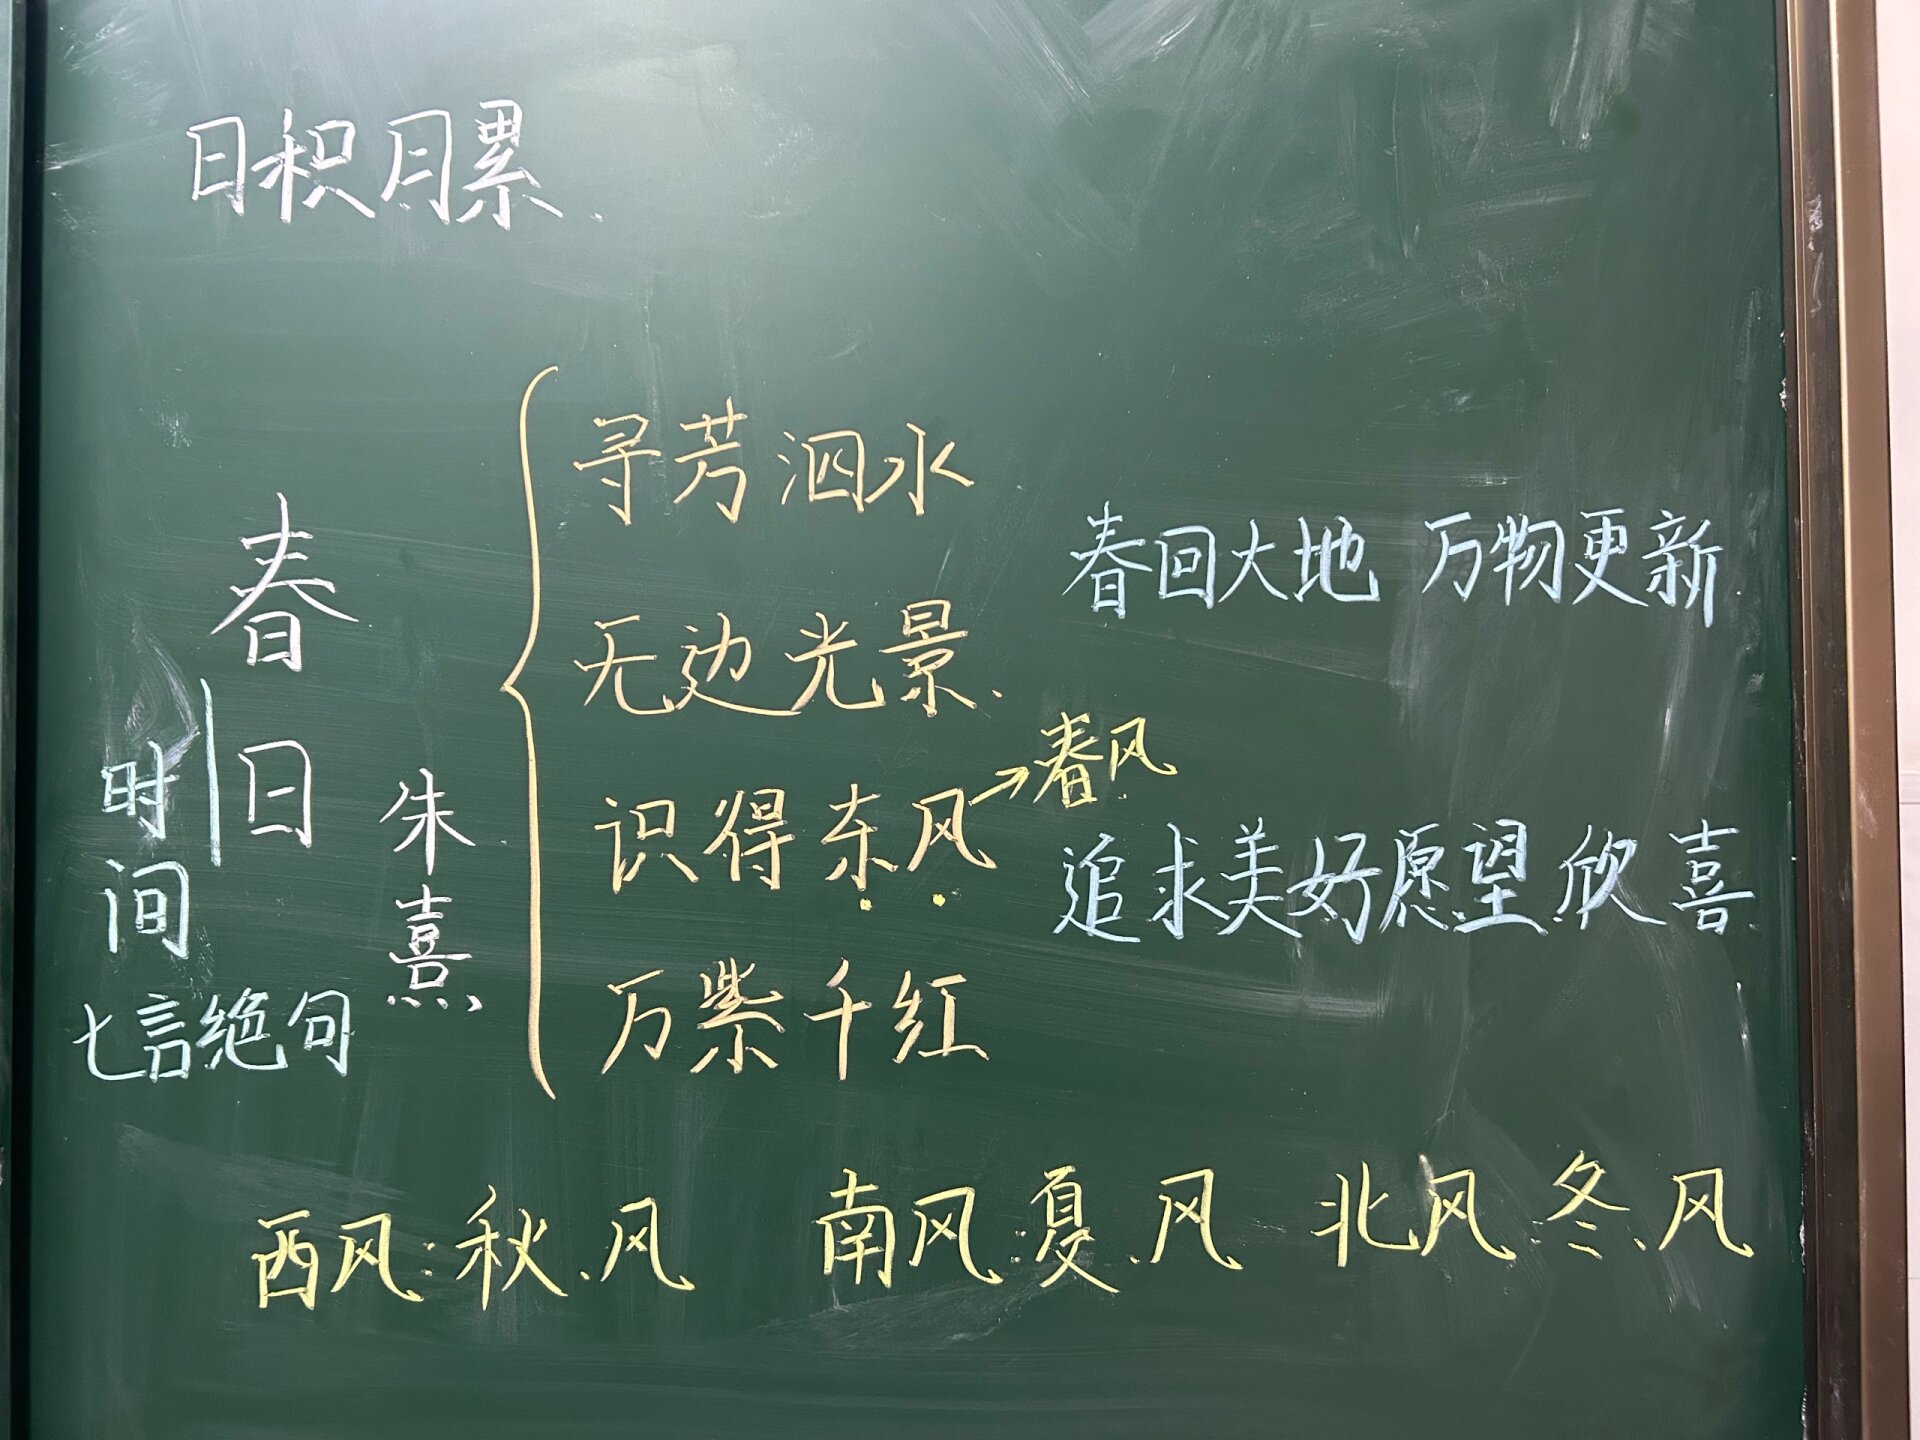 日积月累.
春日
时间
七言绝句
朱熹
寻芳泗水
无边光景.
识得东风→春风
万紫千红
春回大地 万物更新
追求美好愿望 欣喜
西风:秋.风 南风:夏.风 北风:冬.风